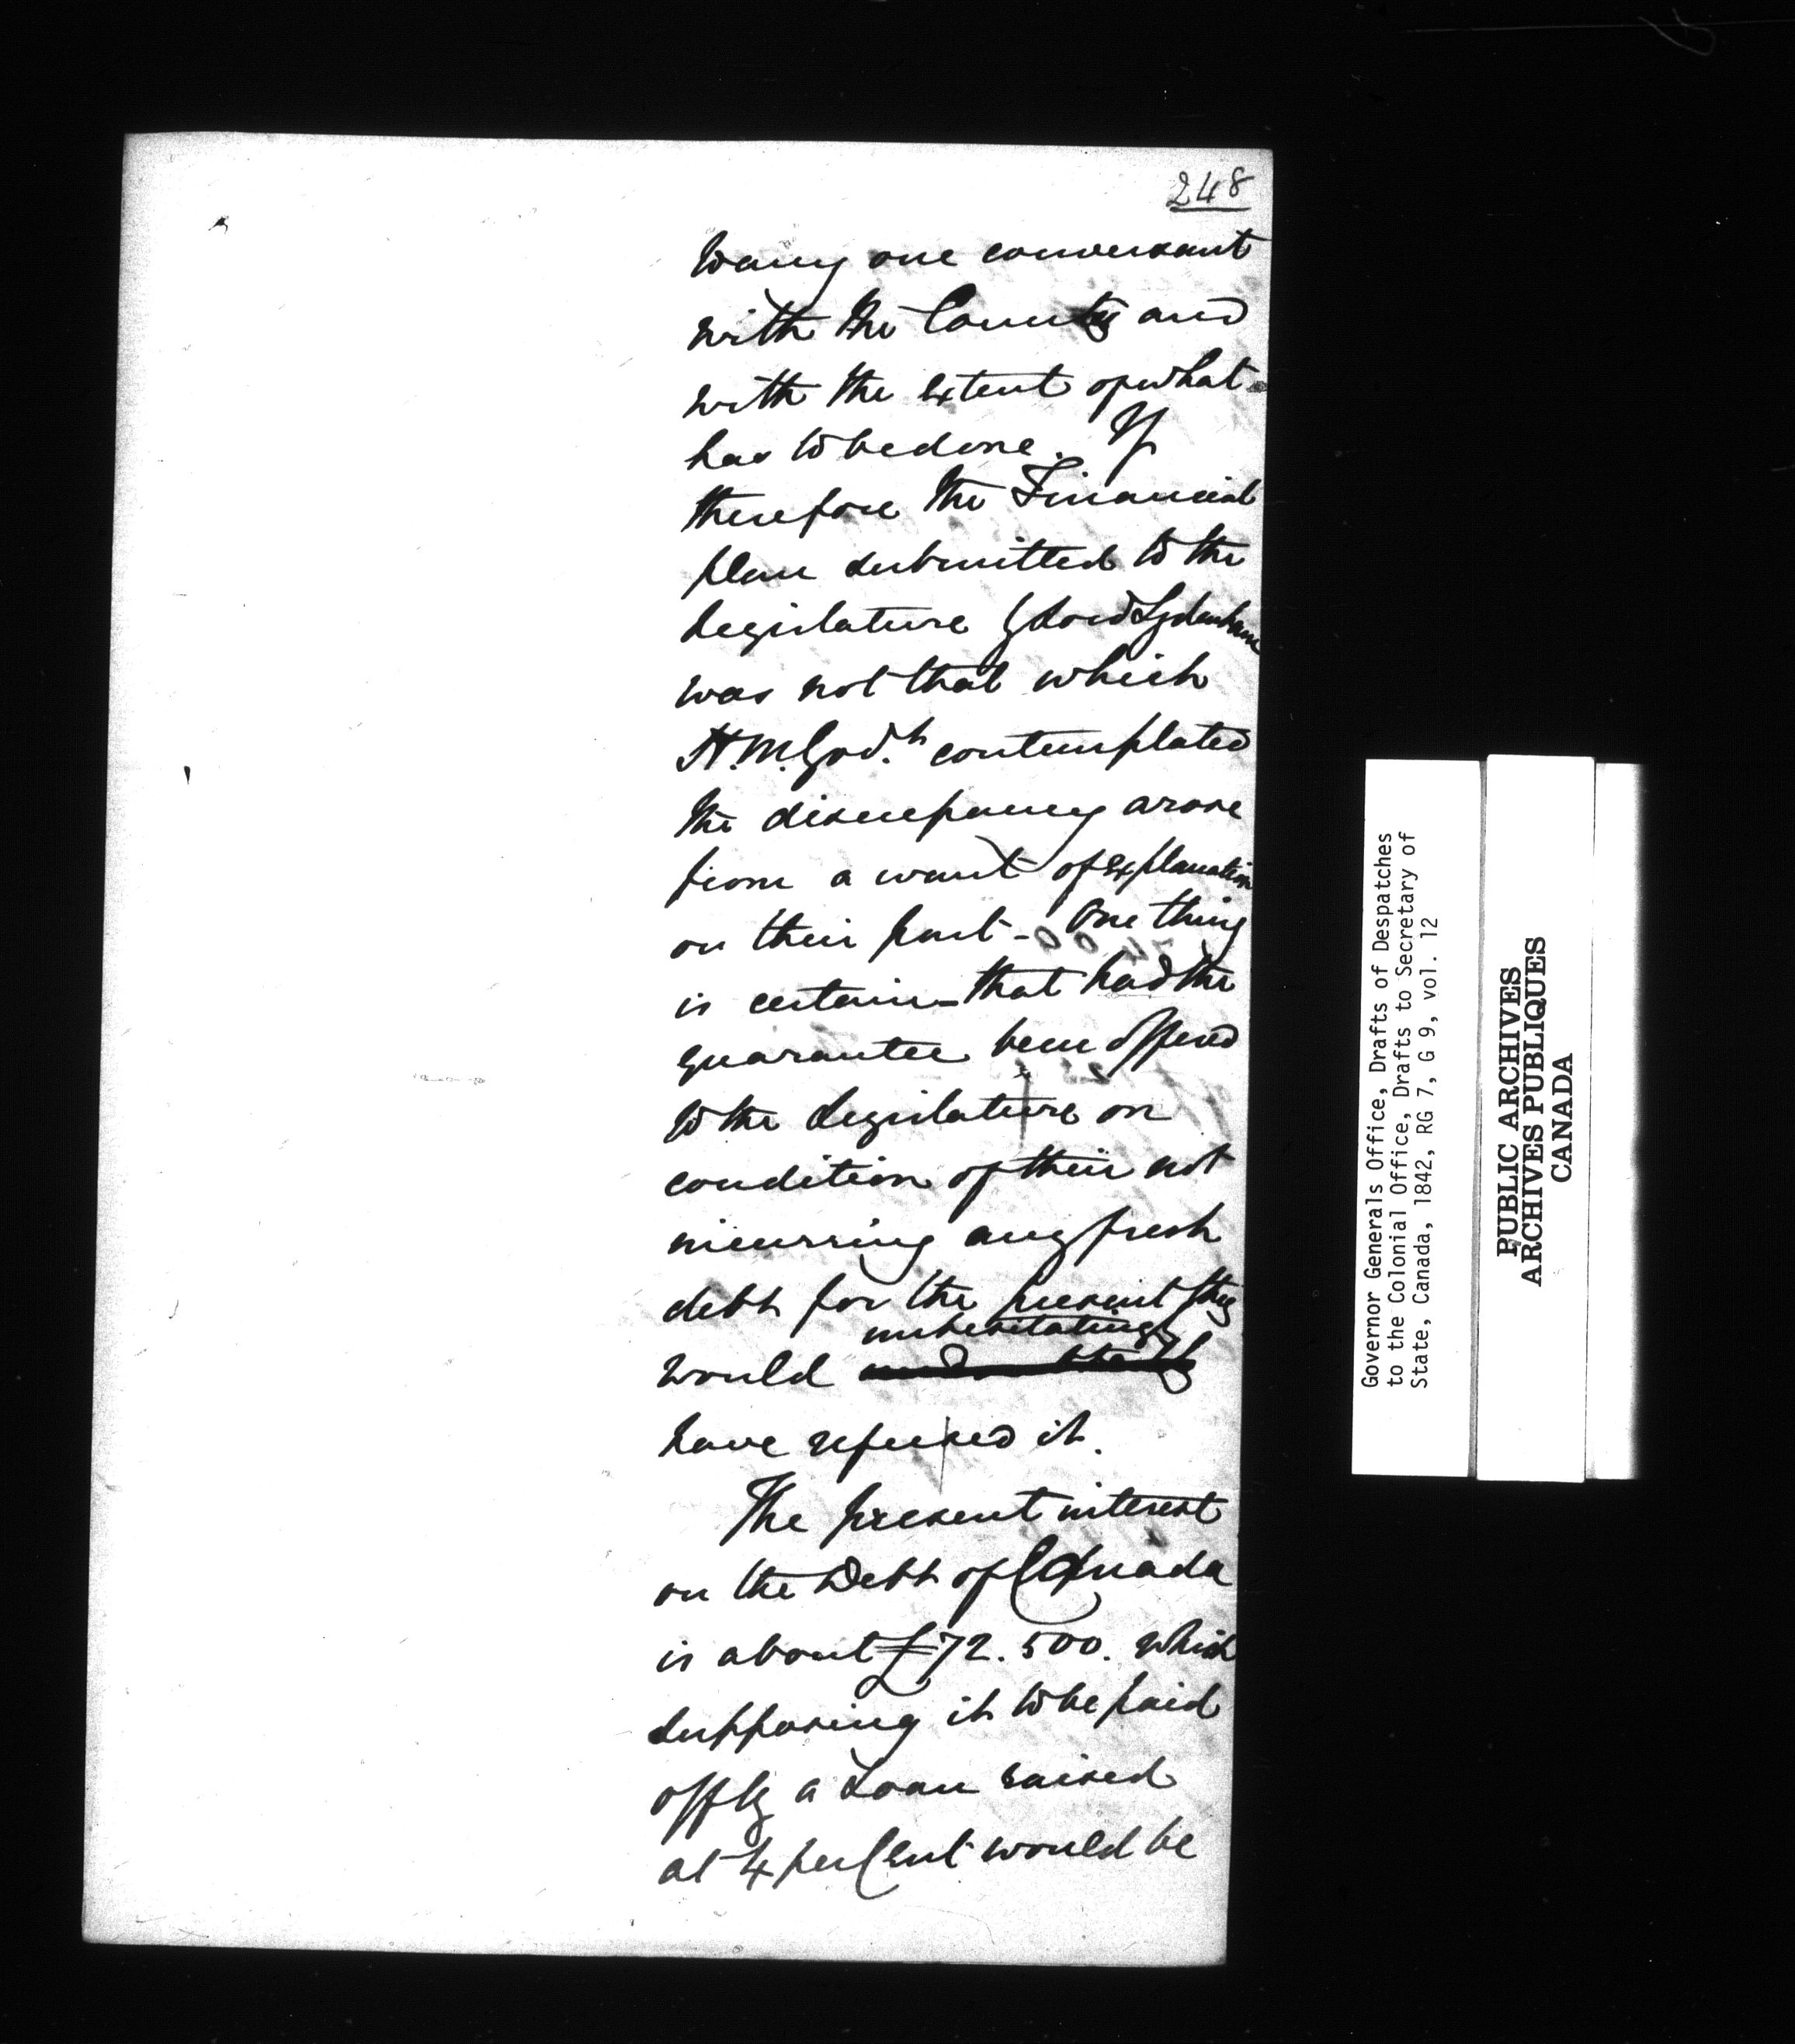 248
to any one conversant
with the Country and
with the extent of what
has to be done. If
therefore the Financial
plan submitted to the
Legislature by Lord Sydenham
was not that which
H.M. Govt. contemplated
the discrepancy arose
from a want of explanation
on their part - One thing
is certain - that had the
guarantee been offered
to the Legislature on
condition of their not
incurring any fresh
debt for the present they
unhesitatingly
would undoubtedly
have refused it.
The present interest
on the Debt of Canada
is about £72.500. which
supposing it to be paid
off by a Loan raised
at 4 per Cent would be
Governor Generals Office, Drafts of Despatches
to the Colonial Office, Drafts to Secretary of
State, Canada, 1842, RG 7, G 9, vol. 12
PUBLIC ARCHIVES
ARCHIVES PUBLIQUES
CANADA